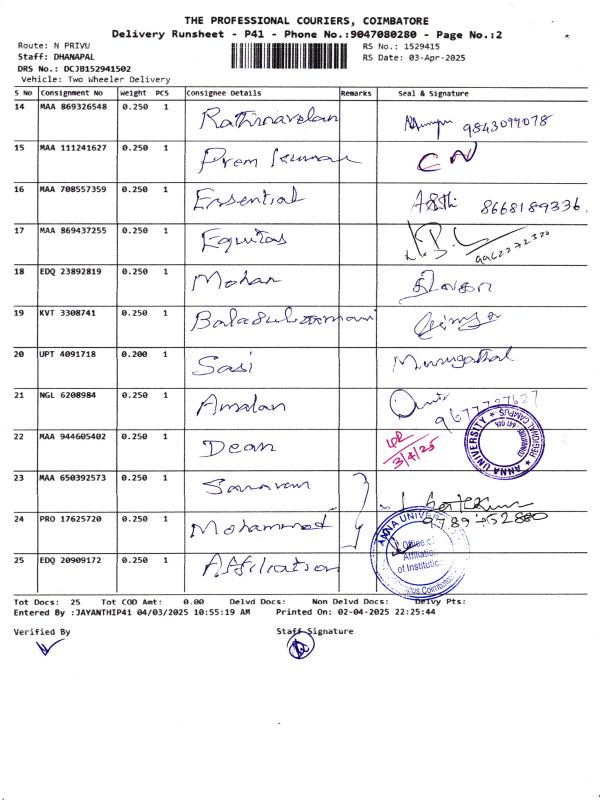 THE PROFESSIONAL COURIERS, COIMBATORE
Delivery Runsheet - P41 - Phone No.:9047080280 - Page No.:2
Route: N PRIVU
RS No.: 1529415
Staff: DHANAPAL
RS Date: 03-Apr-2025
DRS No.: DCJB152941502
Vehicle: Two Wheeler Delivery
S No Consignment No Weight PCS Consignee Details Remarks Seal & Signature
14 MAA 869326548 0.250 1 Rathinavelan 9843099078
15 MAA 111241627 0.250 1 Prem kumar CN
16 MAA 708557359 0.250 1 Essential 8668189336
17 MAA 869437255 0.250 1 Equitas 9962272320
18 EDQ 23892819 0.250 1 Mohan
19 KVT 3308741 0.250 1 Balasubramani
20 UPT 4091718 0.200 1 Sasi Murugathal
21 NGL 6208984 0.250 1 Amalan 9677727627
22 MAA 944605402 0.250 1 Dean 3/4/25
ANNA UNIVERSITY * REGIONAL CAMPUS *
COIMBATORE
641 046
23 MAA 650392573 0.250 1 Saravan
24 PRO 17625720 0.250 1 Mohammed 9789452880
25 EDQ 20909172 0.250 1 Affiliation
ANNA UNIVER
Office of
Affiliation
of Institutions
Coimbatore
Tot Docs: 25 Tot COD Amt: 0.00 Delvd Docs: Non Delvd Docs: Delvy Pts:
Entered By :JAYANTHIP41 04/03/2025 10:55:19 AM Printed On: 02-04-2025 22:25:44
Verified By Staff Signature